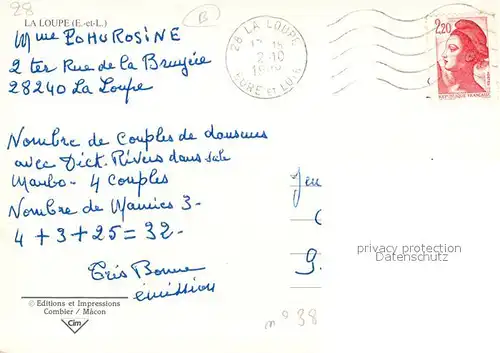 28
B
LA LOUPE (E.-et-L.)
28 LA LOUPE
2-10
EURE ET LOIR
2,20
REPUBLIQUE FRANÇAISE
Mme POHU ROSINE
2 ter Rue de la Bruyère
28240 La Loupe
Nombre de couples de danseurs
avec Dick. Rivers dans
4 couples
Nombre de Mamies 3-
4 + 3 + 25 = 32-
Tris Bonne
émission
Jeu
G.
privacy protection
Datenschutz
© Editions et Impressions
Combier / Mâcon
Cim
n° 38